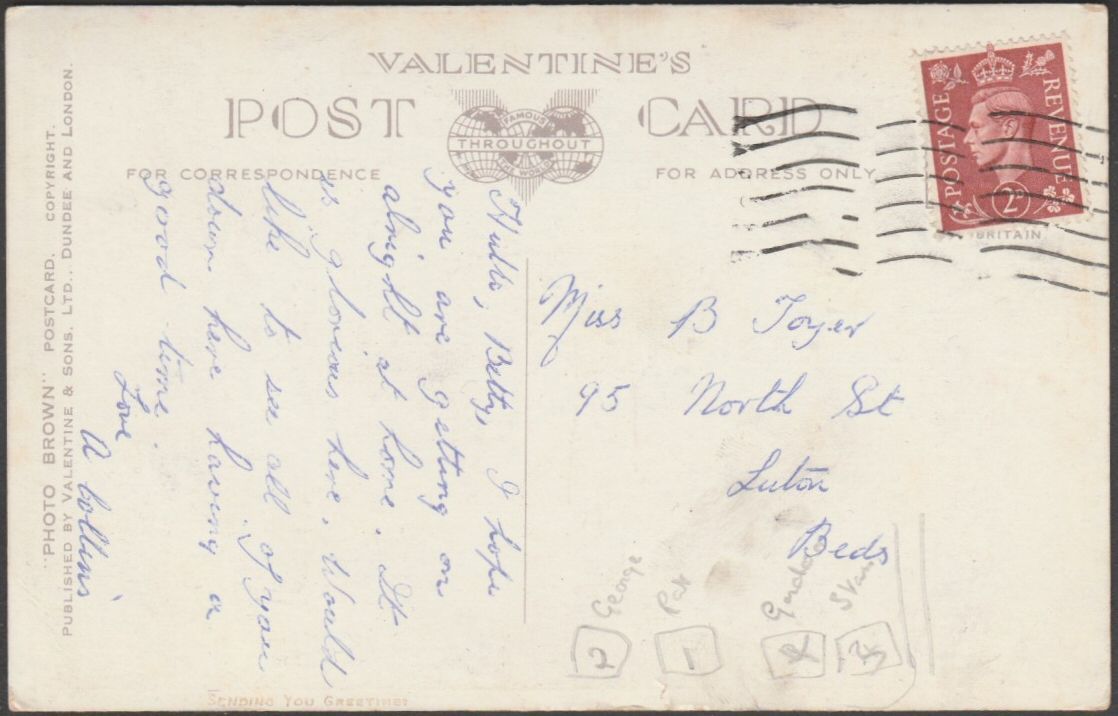 VALENTINE'S
POST CARD
FAMOUS
THROUGHOUT
THE WORLD
FOR CORRESPONDENCE
FOR ADDRESS ONLY
POSTAGE REVENUE
2D
BRITAIN
Hullo, Betty, I hope
you are getting on
alright at home. It
is glorious here. Would
like to see all of you
down here having a
good time.
Love
A Collins
Miss B Toyer
95 North St
Luton
Beds
George
Pat
2
1
"PHOTO BROWN" POSTCARD. COPYRIGHT.
PUBLISHED BY VALENTINE & SONS. LTD., DUNDEE AND LONDON.
SENDING YOU GREETINGS